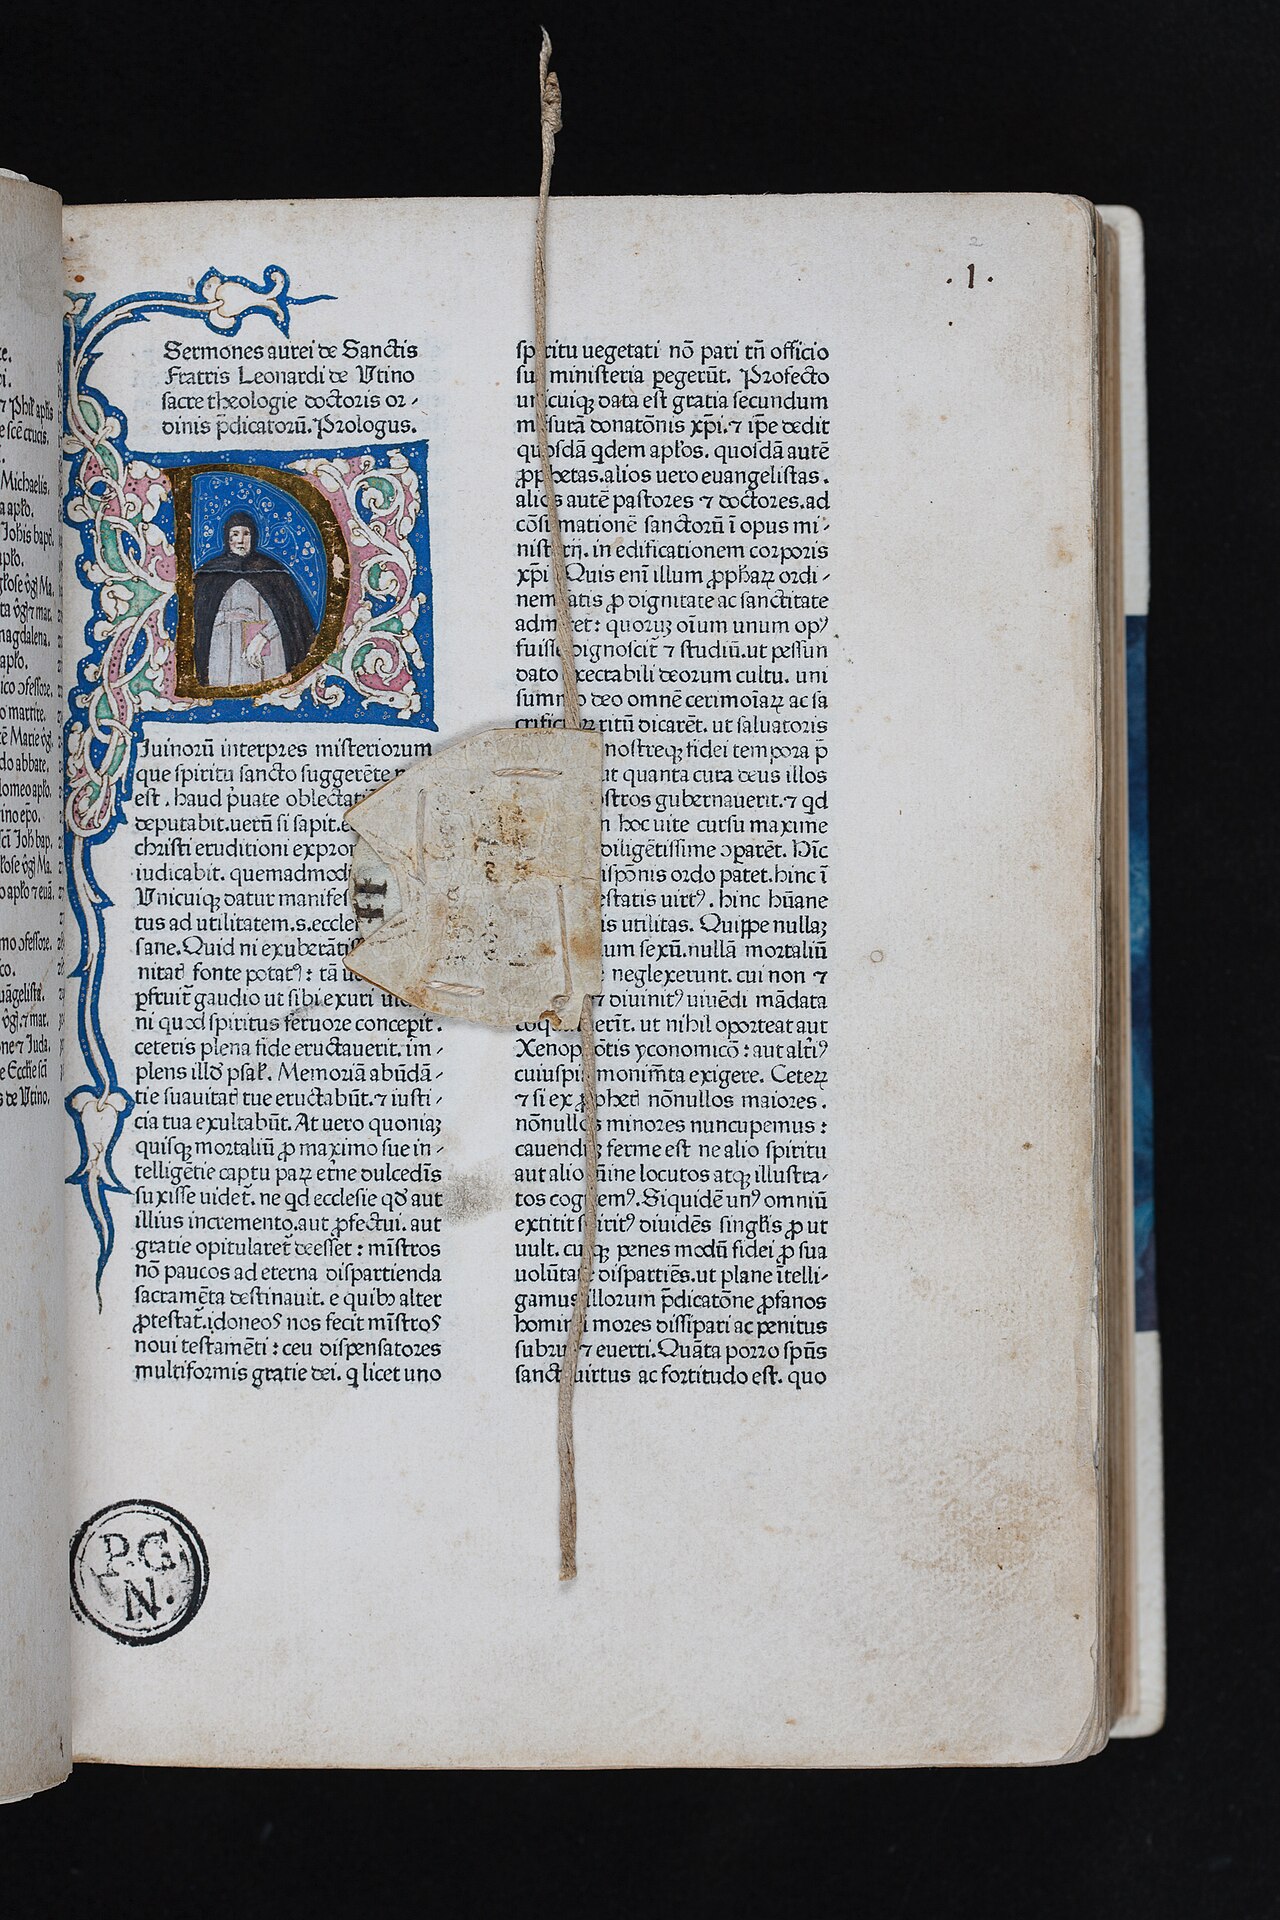 2
.1.
Sermones aurei de Sanctis
Fratris Leonardi de Utino
sacre theologie doctoris or-
dinis p̄dicatorū. Prologus.
Diuinorū interpres misteriorum
que spiritu sancto suggerēte
est. haud p̄uate oblectati
deputabit. uerū si sapit.
christi eruditioni expro
iudicabit. quemadmodū
Vnicuiq; datur manifes
tus ad utilitatem.s.eccle
sane. Quid ni exuberātis
nitat̄ fonte potat⁹: tā
pfruit̄ gaudio ut sibi exuri
ni quod spiritus feruore concepit.
ceteris plena fide eructauerit. im-
plens illd̄ psal̄. Memoriā abūdā-
tie suauitat̄ tue eructabūt. ⁊ iusti-
cia tua exultabūt. At uero quoniaȝ
quisq; mortaliū ꝓ maximo sue in-
telligētie captu paꝝ et̄ne dulcedīs
suxisse uidet̄. ne qd ecclesie qd̄ aut
illius incremento. aut ꝓfectui. aut
gratie opitularet̄ deesset: mīstros
nō paucos ad eterna dispartienda
sacramēta destinauit. e quibꝰ alter
ꝓtestat̄. idoneos nos fecit mīstros
noui testamēti: ceu dispensatores
multiformis gratie dei. q licet uno
spiritu uegetati nō pari tn̄ officio
sui ministeria pegerūt. Profecto
unicuiq; data est gratia secundum
mēsurā donatōnis xp̄i. ⁊ ip̄e dedit
quosdā qdem apl̄os. quosdā autē
ꝓphetas. alios uero euangelistas.
alios autē pastores ⁊ doctores. ad
cōsūmationē sanctorū ī opus mi-
nisterij. in edificationem corporis
xp̄i. Quis enī illum ꝓphaꝝ ordi-
nem satis ꝓ dignitate ac sanctitate
admiret: quoruȝ oīum unum op⁹
fuisse dignoscit̄ ⁊ studiū. ut pessun
dato execrabili deorum cultu. uni
summo deo omnē cerimoīaꝝ ac sa
crificioꝝ ritū dicarēt. ut saluatoris
nostreq; fidei tempora p̄
ut quanta cura deus illos
nostros gubernauerit. ⁊ qd
in hoc uite cursu maxime
diligētissime ɔparēt. Hīc
ordo patet. hinc ī
uirt⁹. hinc hūane
is utilitas. Quippe nullaȝ
um sexū. nullā mortaliū
neglexerunt. cui non ⁊
diuinit⁹ uiuēdi mādata
erīt. ut nihil oporteat aut
Xenophōtis yconomicō: aut alt̄i⁹
cuiuspiā monim̄ta exigere. Ceteꝝ
⁊ si ex ꝓphet̄ nōnullos maiores.
nōnullos minores nuncupemus:
cauenduȝ ferme est ne alio spiritu
aut alio n̄ine locutos atq; illustra-
tos cogitem⁹. Siquidē un⁹ omniū
extitit spirit⁹ diuidēs singl̄is ꝓ ut
uult. cuiq; penes modū fidei ꝓ sua
volūtate dispartiēs. ut plane ītelli-
gamus illorum p̄dicatōne ꝓfanos
hominū mores dissipari ac penitus
subrui ⁊ euerti. Quāta porro sp̄ūs
sancti uirtus ac fortitudo est. quo
P.G.
N.